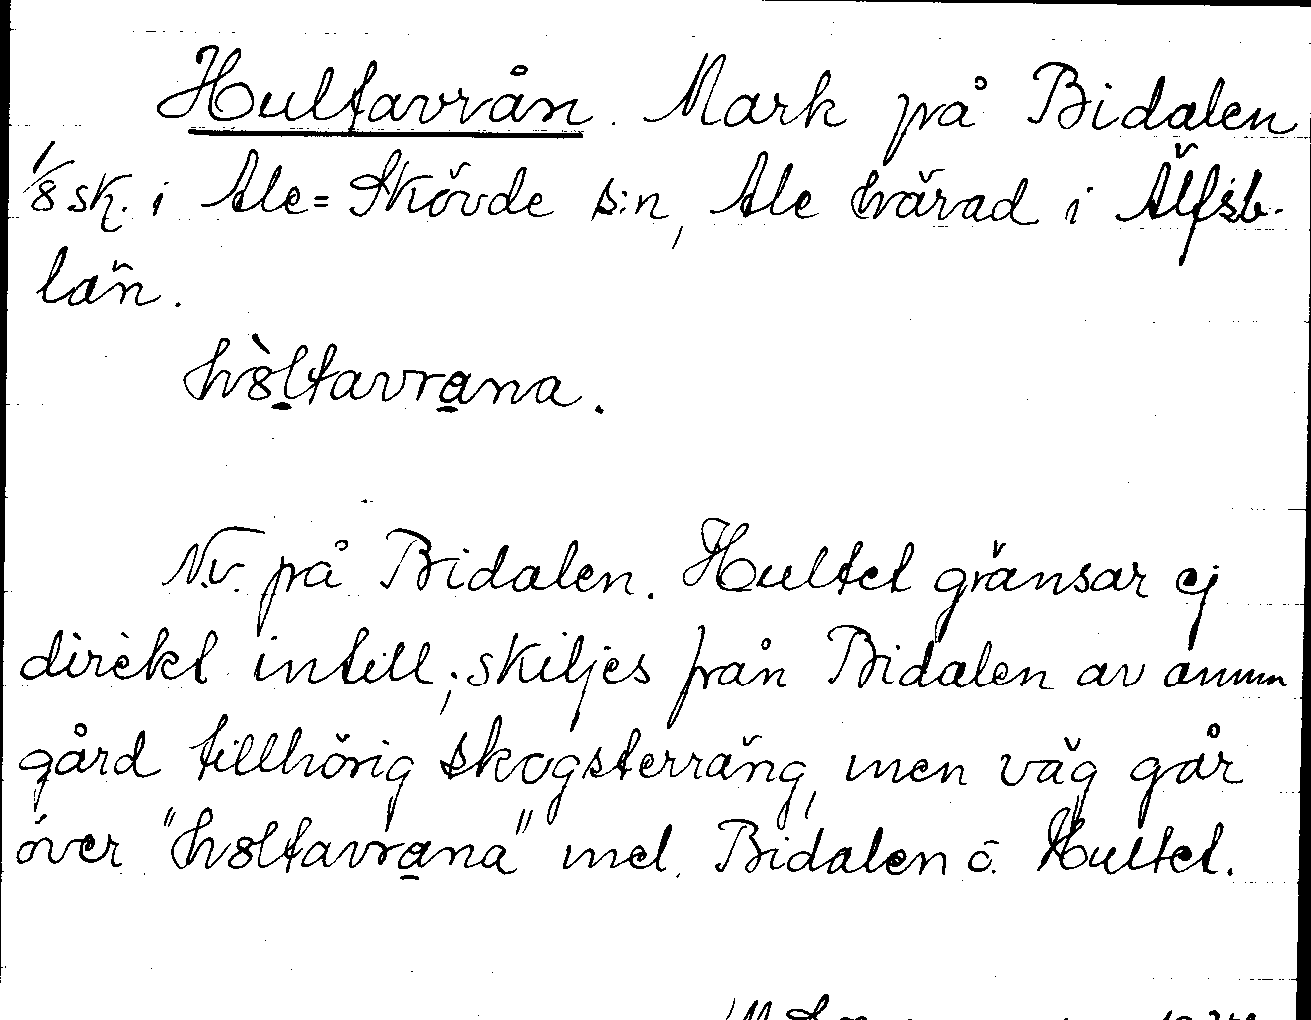 Hultavrån. Mark på Bidalen
1/8 sk. i Ale=Skövde s:n, Ale härad i Älfsb.
län.
hòltavrana.
N.v. på Bidalen. Hultet gränsar ej
direkt intill; skiljes från Bidalen av annan
gård tillhörig skogsterräng, men väg går
över "holtavrana" mel. Bidalen o. Hultet.